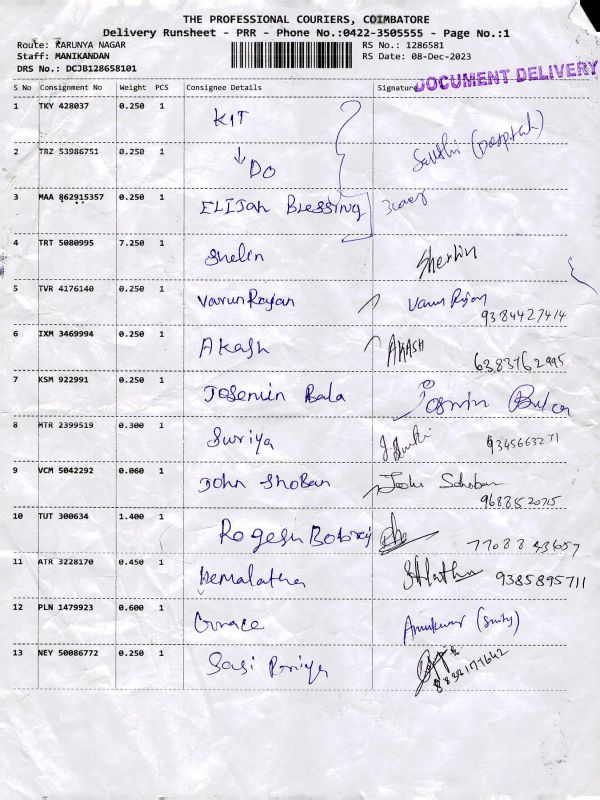 THE PROFESSIONAL COURIERS, COIMBATORE
Delivery Runsheet - PRR - Phone No.:0422-3505555 - Page No.:1
Route: KARUNYA NAGAR RS No.: 1286581
Staff: MANIKANDAN RS Date: 08-Dec-2023
DRS No.: DCJB128658101
DOCUMENT DELIVERY
S No Consignment No Weight PCS Consignee Details Signature
1 TKY 428037 0.250 1 KIT
2 TRZ 53986751 0.250 1 ↓ DO
3 MAA 862915357 0.250 1 ELIJah Blessing
4 TRT 5080995 7.250 1 Shelin Sherlin
5 TVR 4176140 0.250 1 Varun Rajan Varun Rajan
9384427414
6 IXM 3469994 0.250 1 Akash AKASH
6383762995
7 KSM 922991 0.250 1 Josemin Bala
8 MTR 2399519 0.300 1 Suriya 9345663271
9 VCM 5042292 0.060 1 John Shoban
9688520715
10 TUT 300634 1.400 1
77088 43657
11 ATR 3228170 0.450 1 Hemalatha 9385895711
12 PLN 1479923 0.600 1 Grace
13 NEY 50086772 0.250 1 Sasi Priya